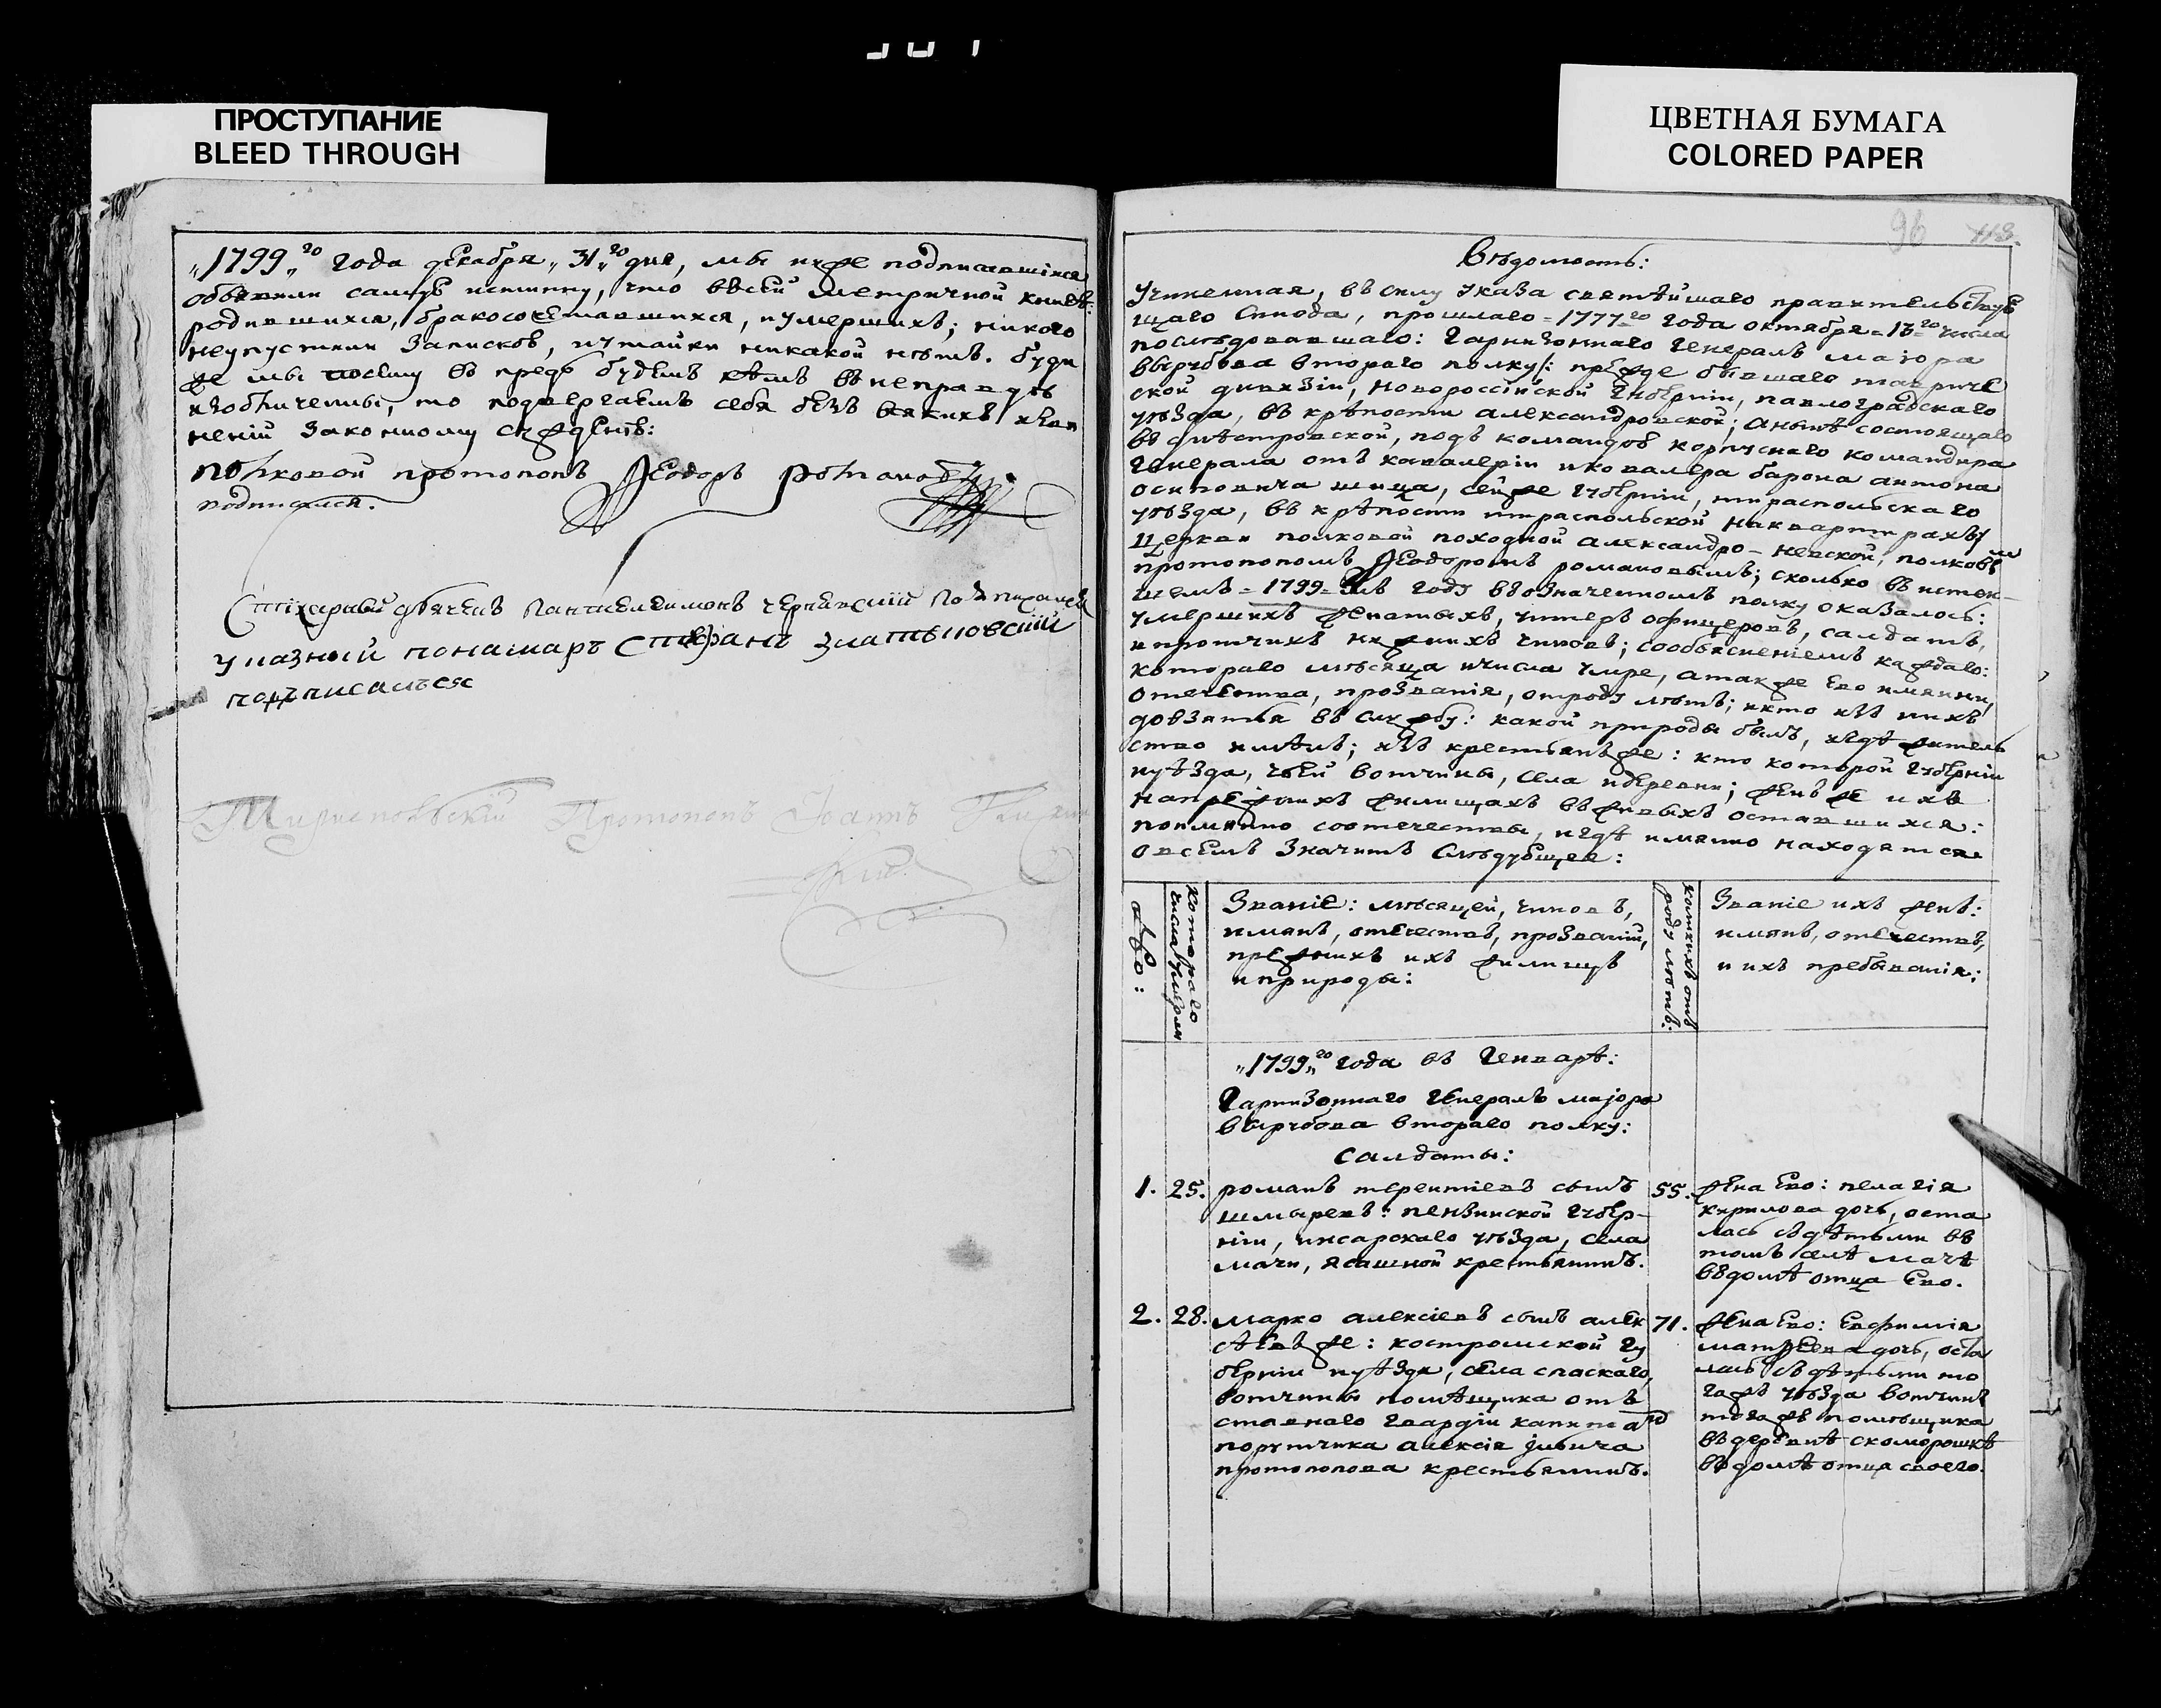 ПРОСТУПАНИЕ
BLEED THROUGH
ЦВЕТНАЯ БУМАГА
COLORED PAPER
„1799„го года декабря „31„го дня, мы ниже подписавшіися
объявили самую истинну, чтоввсей метричной книге:
родившихся, бракосочетавшихся, иумершихъ; никого
неупустили записков, иутайки никакой нѣтъ. буди
же мы посему въ предь будемъ кѣмъ въ неправдѣ
изобличенны, то подвергаемъ себя безъ всякихъ изви
неній законному сужденію:
полковой протопопъ Ѳеодоръ Романовъ
подписался.
Стіхарный дьячекъ Пантелеимонъ Чернявскій подписался
указный понамарь Стефанъ Златковскій
подписался
Тираспольскій Протопопъ Іоаннъ
96 113.
Вѣдомость:
Учиненная, въ силу указа святѣйшаго правительствую
щаго Синода, прошлаго 1777го года октября 13го числа
послѣдовавшаго: гарнизоннаго генералъ маіора
вырубова втораго полку: прежде бывшаго тавриче
ской дивизіи, новороссійской губерніи, павлоградскаго
уѣзда, въ крѣпости александровской; анынѣ состоящаго
въ днѣстровской, подъ командою корпуснаго командира
генерала отъ кавалеріи икавалера барона антона
осиповича шица, сейже губерніи, тираспольскаго
уѣзда, въ крѣпости тираспольской наквартирахъ/
церкви полковой походной александро-невской, полковы мъ
протопопомъ Ѳеодоромъ романовымъ; сколько въ истек-
шемъ 1799мъ году въозначенномъ полку оказалось:
умершихъ женатыхъ, унтеръ офицеровъ, салдатъ,
ипротчихъ нижнихъ чиновъ; собъясненіемъ каждаго:
котораго мѣсяца ичисла умре, атакже ево имянни,
отечества, прозванія, отроду лѣтъ; икто изъ нихъ
довзятья въ службу: какой природы былъ, игдѣ жител
ство имѣлъ; изъ крестьянъже: кто которой губерніи
иуѣзда, чьей вотчины, села идеревни; женъ же ихъ
напрежнихъ жилищахъ въживыхъ оставшихся:
поимянно соотечествы, игдѣ имянно находятся
овсемъ значитъ слѣдующее:
Котораго
числа умерли
Званіе: мѣсяцей, чиновъ,
имянъ, отечествъ, прозваній,
прежнихъ ихъ жилищъ
иприроды:
коликихъ отъ
роду лѣтъ:
Званіе ихъ женъ:
имянъ, отечествъ,
и ихъ пребыванія:
„1799„го года въ генварѣ:
Гарнизоннаго генералъ маіора
вырубова втораго полку:
Салдаты:
1. 25. романъ терентіевъ сынъ
шмыревъ: пензинской губер-
ніи, инсарскаго уѣзда, села
мачи, ясашной крестьянинъ.
55. жена ево: пелагія
кирилова дочь, оста
лась сдѣтьми въ
томъ селѣ мачѣ
въдомѣ отца ево.
2. 28. марко алексіевъ сынъ алек
сѣевъ же: костромской гу
берніи иуѣзда, села спаскаго,
вотчины помѣщика отъ
ставнаго гвардіи капитанъ
порутчика алексія ильича
протопопова крестьянинъ.
71. жена ево: евфимія
матѳеева дочь, оста
лась сдѣтьми то
гожъ уѣзда вотчинѣ
тогожъ помѣщика
въдеревнѣ скоморошкѣ
въдомѣ отца своего.